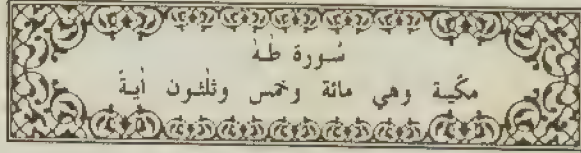 سُورة طٰهٰ
مكّية وهي مائة وخمس وثلثون أيةً